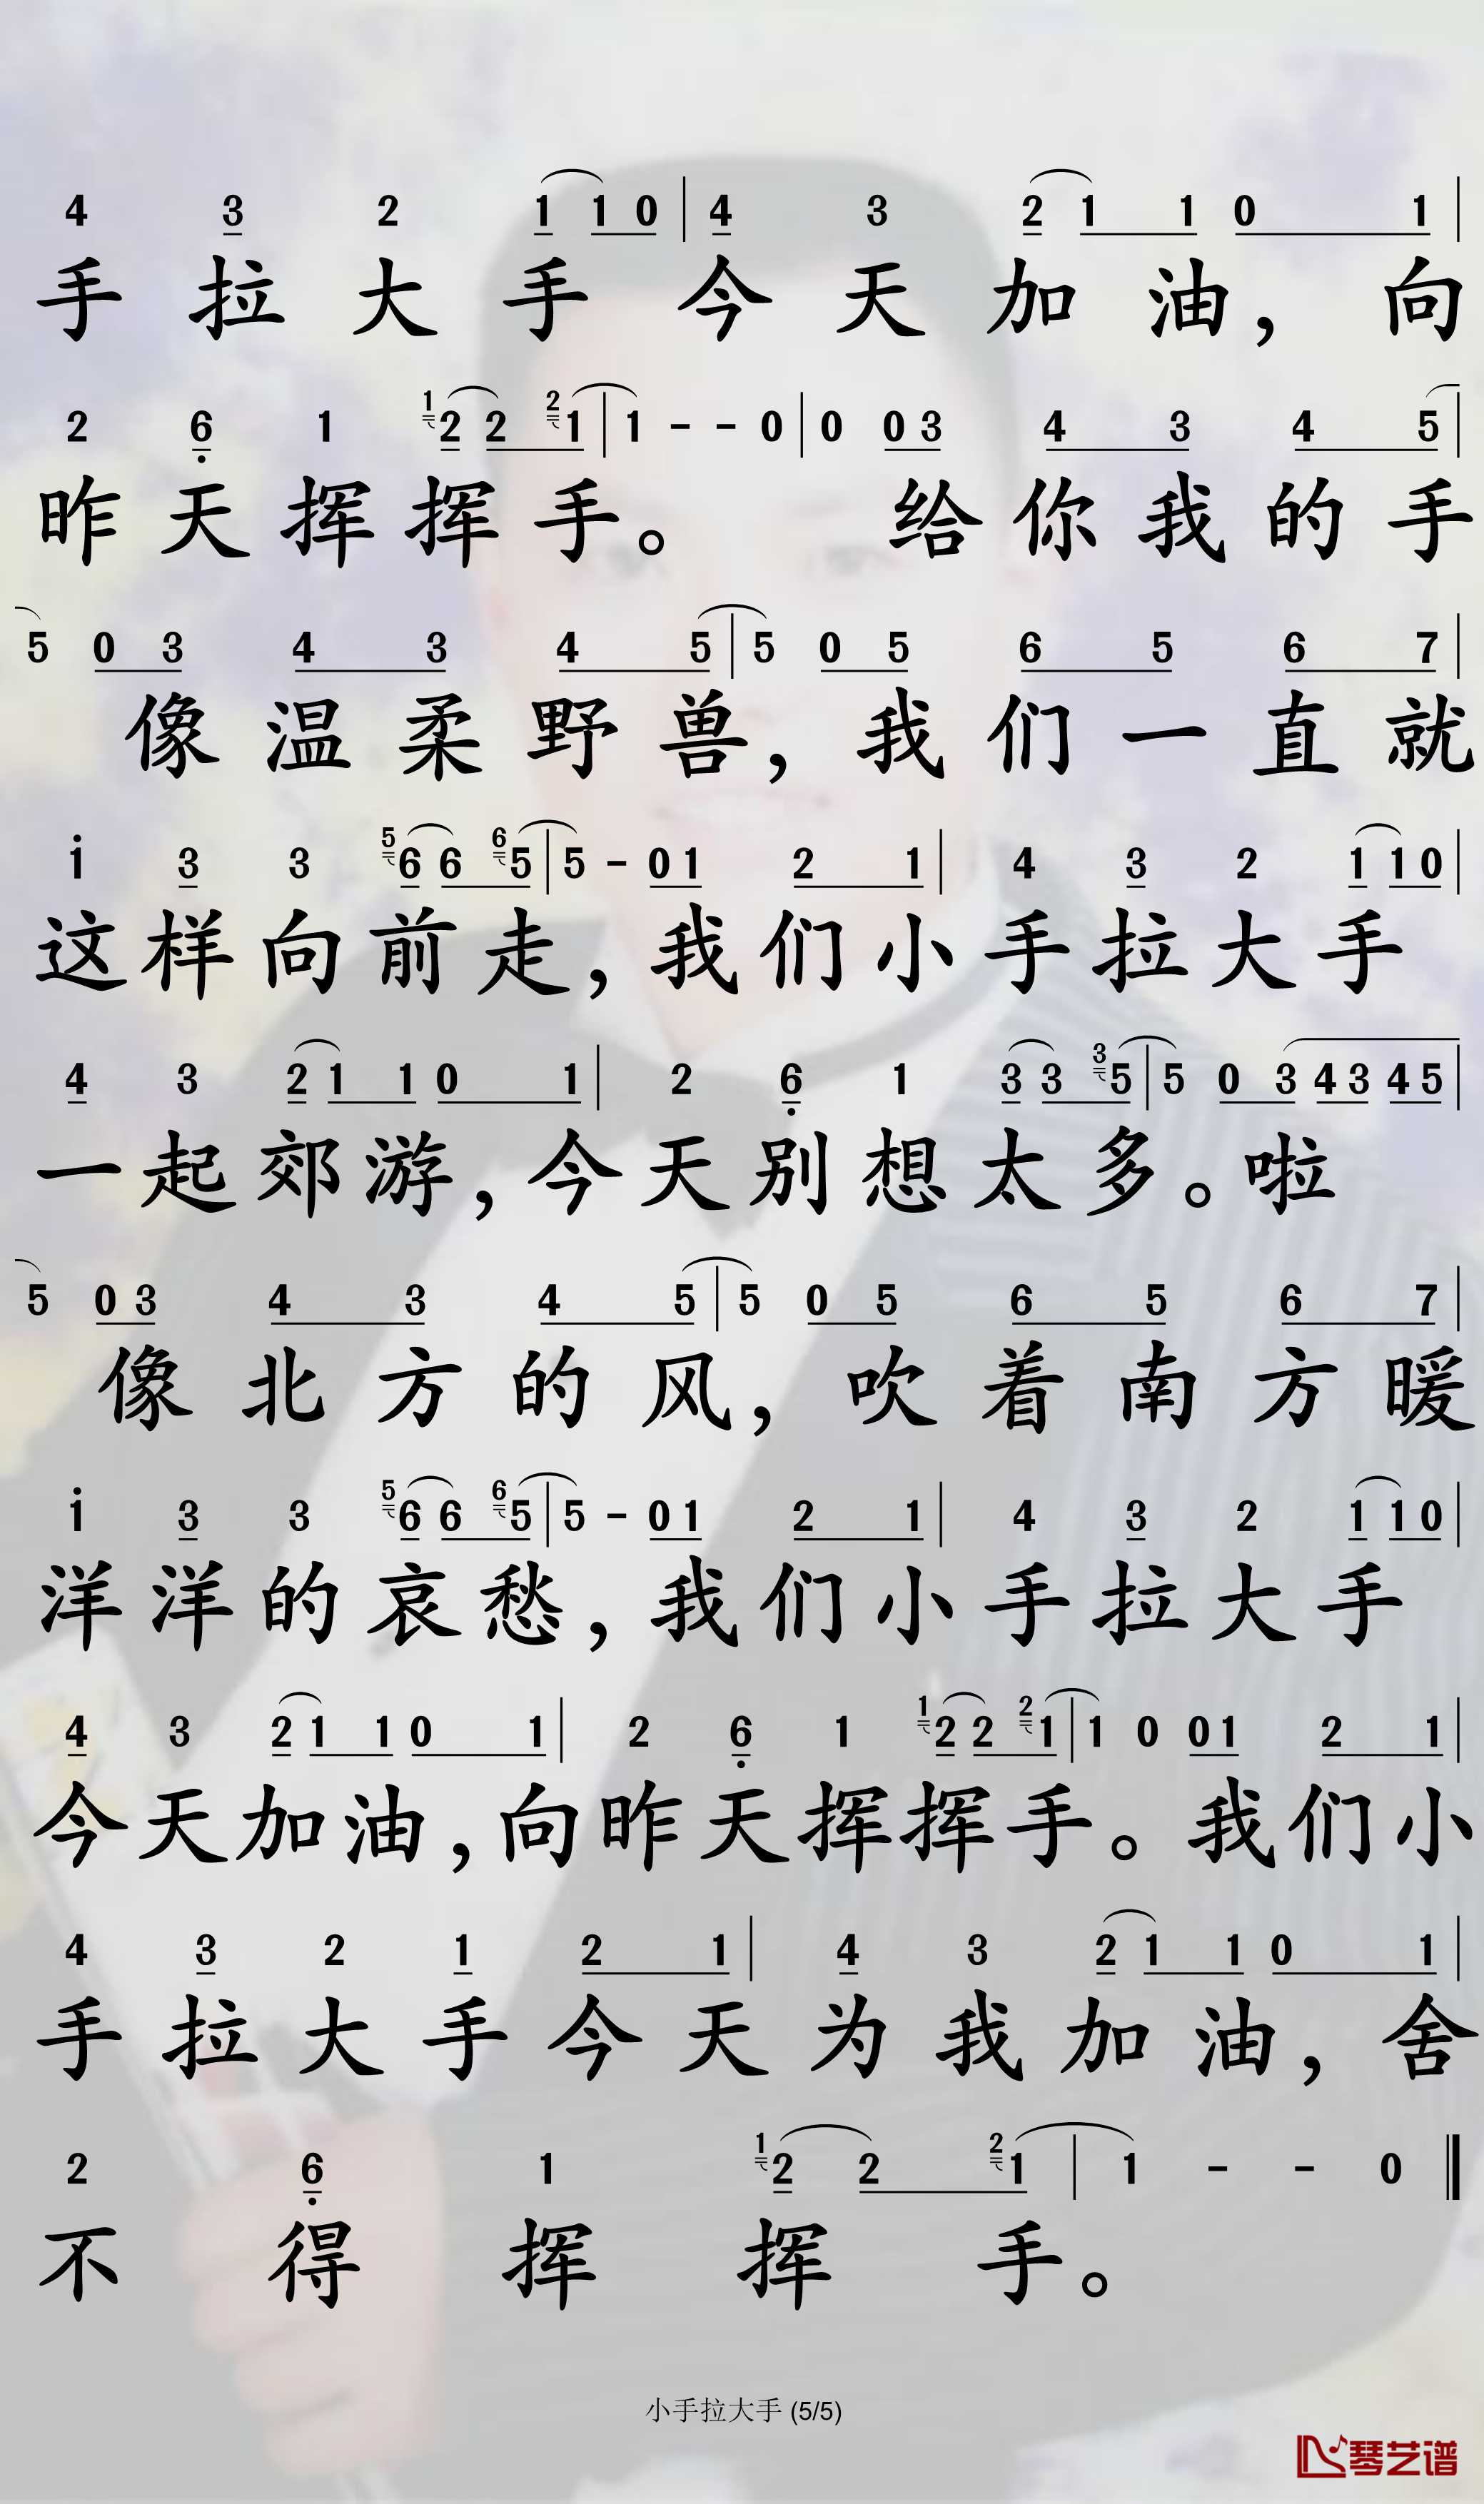 4 3 2 1 1 0 | 4 3 2 1 1 0 1 |
手拉大手今天加油，向
2 6 1 1 2 2 2 1 | 1 - - 0 | 0 0 3 4 3 4 5 |
昨天挥挥手。给你我的手
5 0 3 4 3 4 5 | 5 0 5 6 5 6 7 |
像温柔野兽，我们一直就
1 3 3 5 6 6 6 5 | 5 - 0 1 2 1 | 4 3 2 1 1 0 |
这样向前走，我们小手拉大手
4 3 2 1 1 0 1 | 2 6 1 3 3 3 5 | 5 0 3 4 3 4 5 |
一起郊游，今天别想太多。啦
5 0 3 4 3 4 5 | 5 0 5 6 5 6 7 |
像北方的风，吹着南方暖
1 3 3 5 6 6 6 5 | 5 - 0 1 2 1 | 4 3 2 1 1 0 |
洋洋的哀愁，我们小手拉大手
4 3 2 1 1 0 1 | 2 6 1 1 2 2 2 1 | 1 0 0 1 2 1 |
今天加油，向昨天挥挥手。我们小
4 3 2 1 2 1 | 4 3 2 1 1 0 1 |
手拉大手今天为我加油，舍
2 6 1 1 2 2 2 1 | 1 - - 0 ‖
不得挥挥手。
小手拉大手 (5/5)
琴艺谱